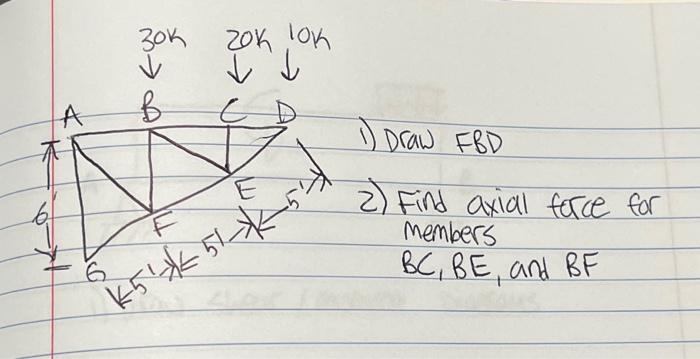 30K 20K 10K
A B C D
1) Draw FBD
6'
E
5'
2) Find axial force for
members
F
5'
BC, BE, and BF
G
5'